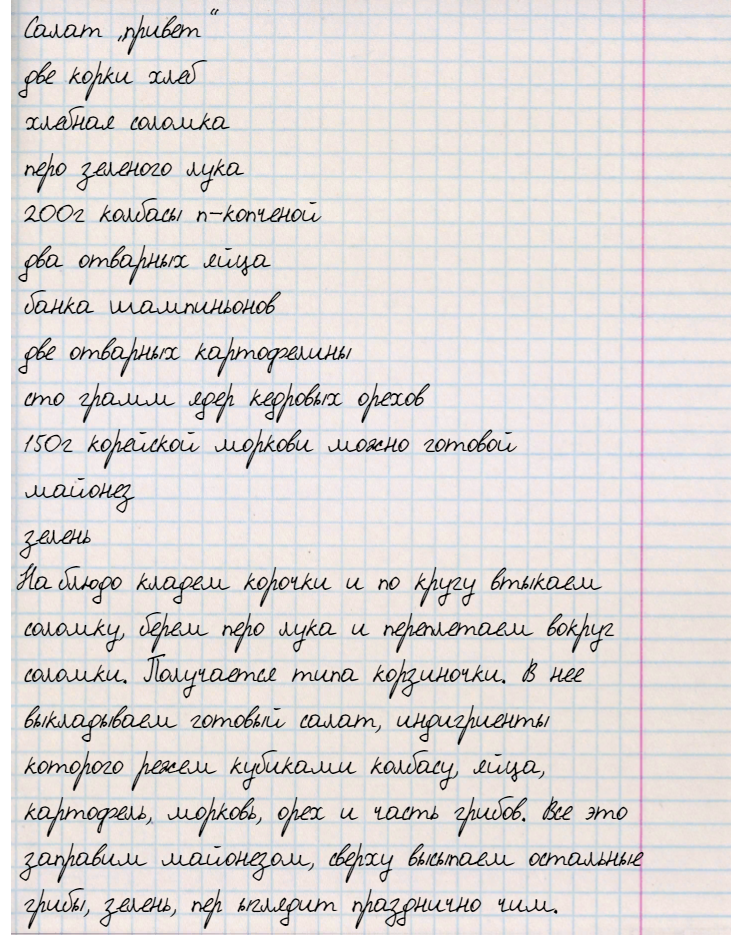 Салат „привет“
две корки хлеб
хлебная соломка
перо зеленого лука
200г колбасы п-копченой
два отварных яйца
банка шампиньонов
две отварных картофелины
сто грамм ядер кедровых орехов
150г корейской моркови можно готовой
майонез
зелень
На блюдо кладем корочки и по кругу втыкаем
соломку, берем перо лука и переплетаем вокруг
соломки. Получается типа корзиночки. В нее
выкладываем готовый салат, индигриенты
которого режем кубиками колбасу, яйца,
картофель, морковь, орех и часть грибов. Все это
заправим майонезом, сверху высыпаем остальные
грибы, зелень, пер ыглядит празднично чим.